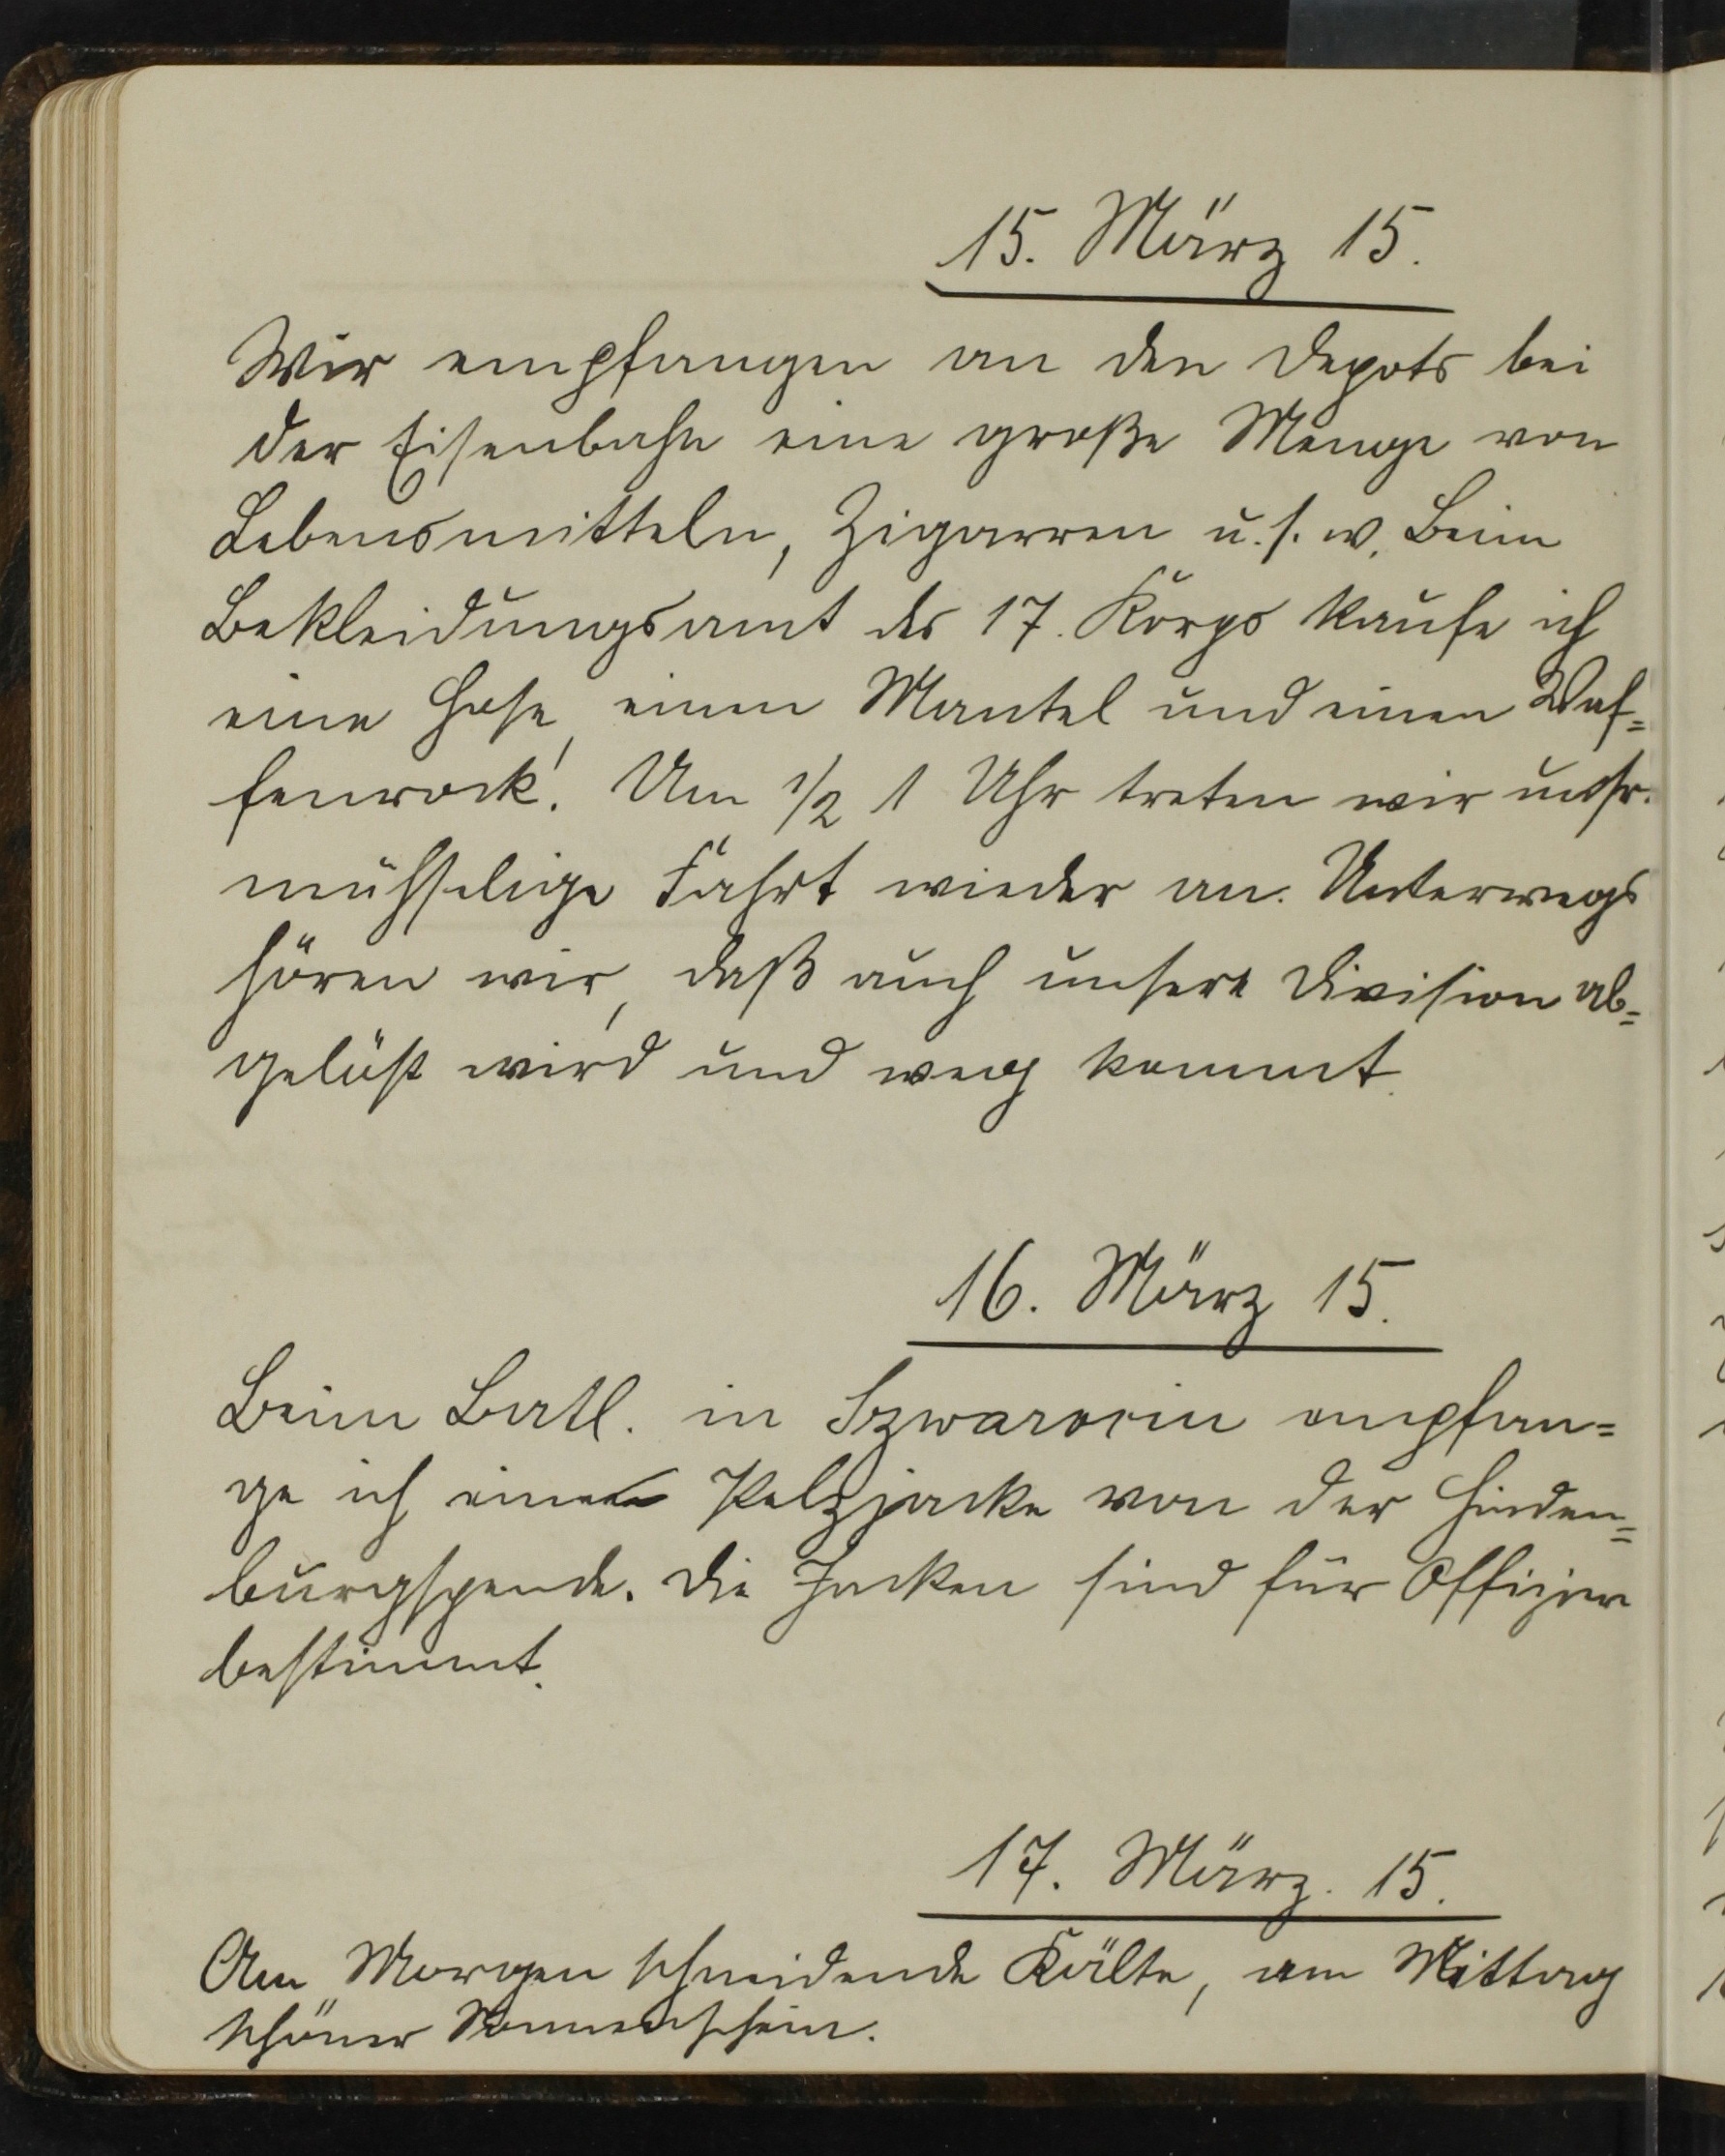 15. März 15.
Wir empfangen an den Depots bei
der Eisenbahn eine große Menge von
Lebensmitteln, Zigarren u.s.w. Beim
Bekleidungsamt des 17. Korps kaufe ich
eine Hose, einen Mantel und einen Waf=
fenrock! Um 1/2 1 Uhr treten wir unsr.
mühselige Fahrt wieder an. Unterwegs
hören wir, daß auch unsere Division ab=
gelöst wird und weg kommt.
16. März 15.
Beim Batl. in empfan=
ge ich eine Pelzjacke von der Hinden=
burgspende. Die Jacken sind für Offizier
bestimmt.
17. März. 15.
Am Morgen schneidende Kälte, am Mittag
schöner Sonnenschein.